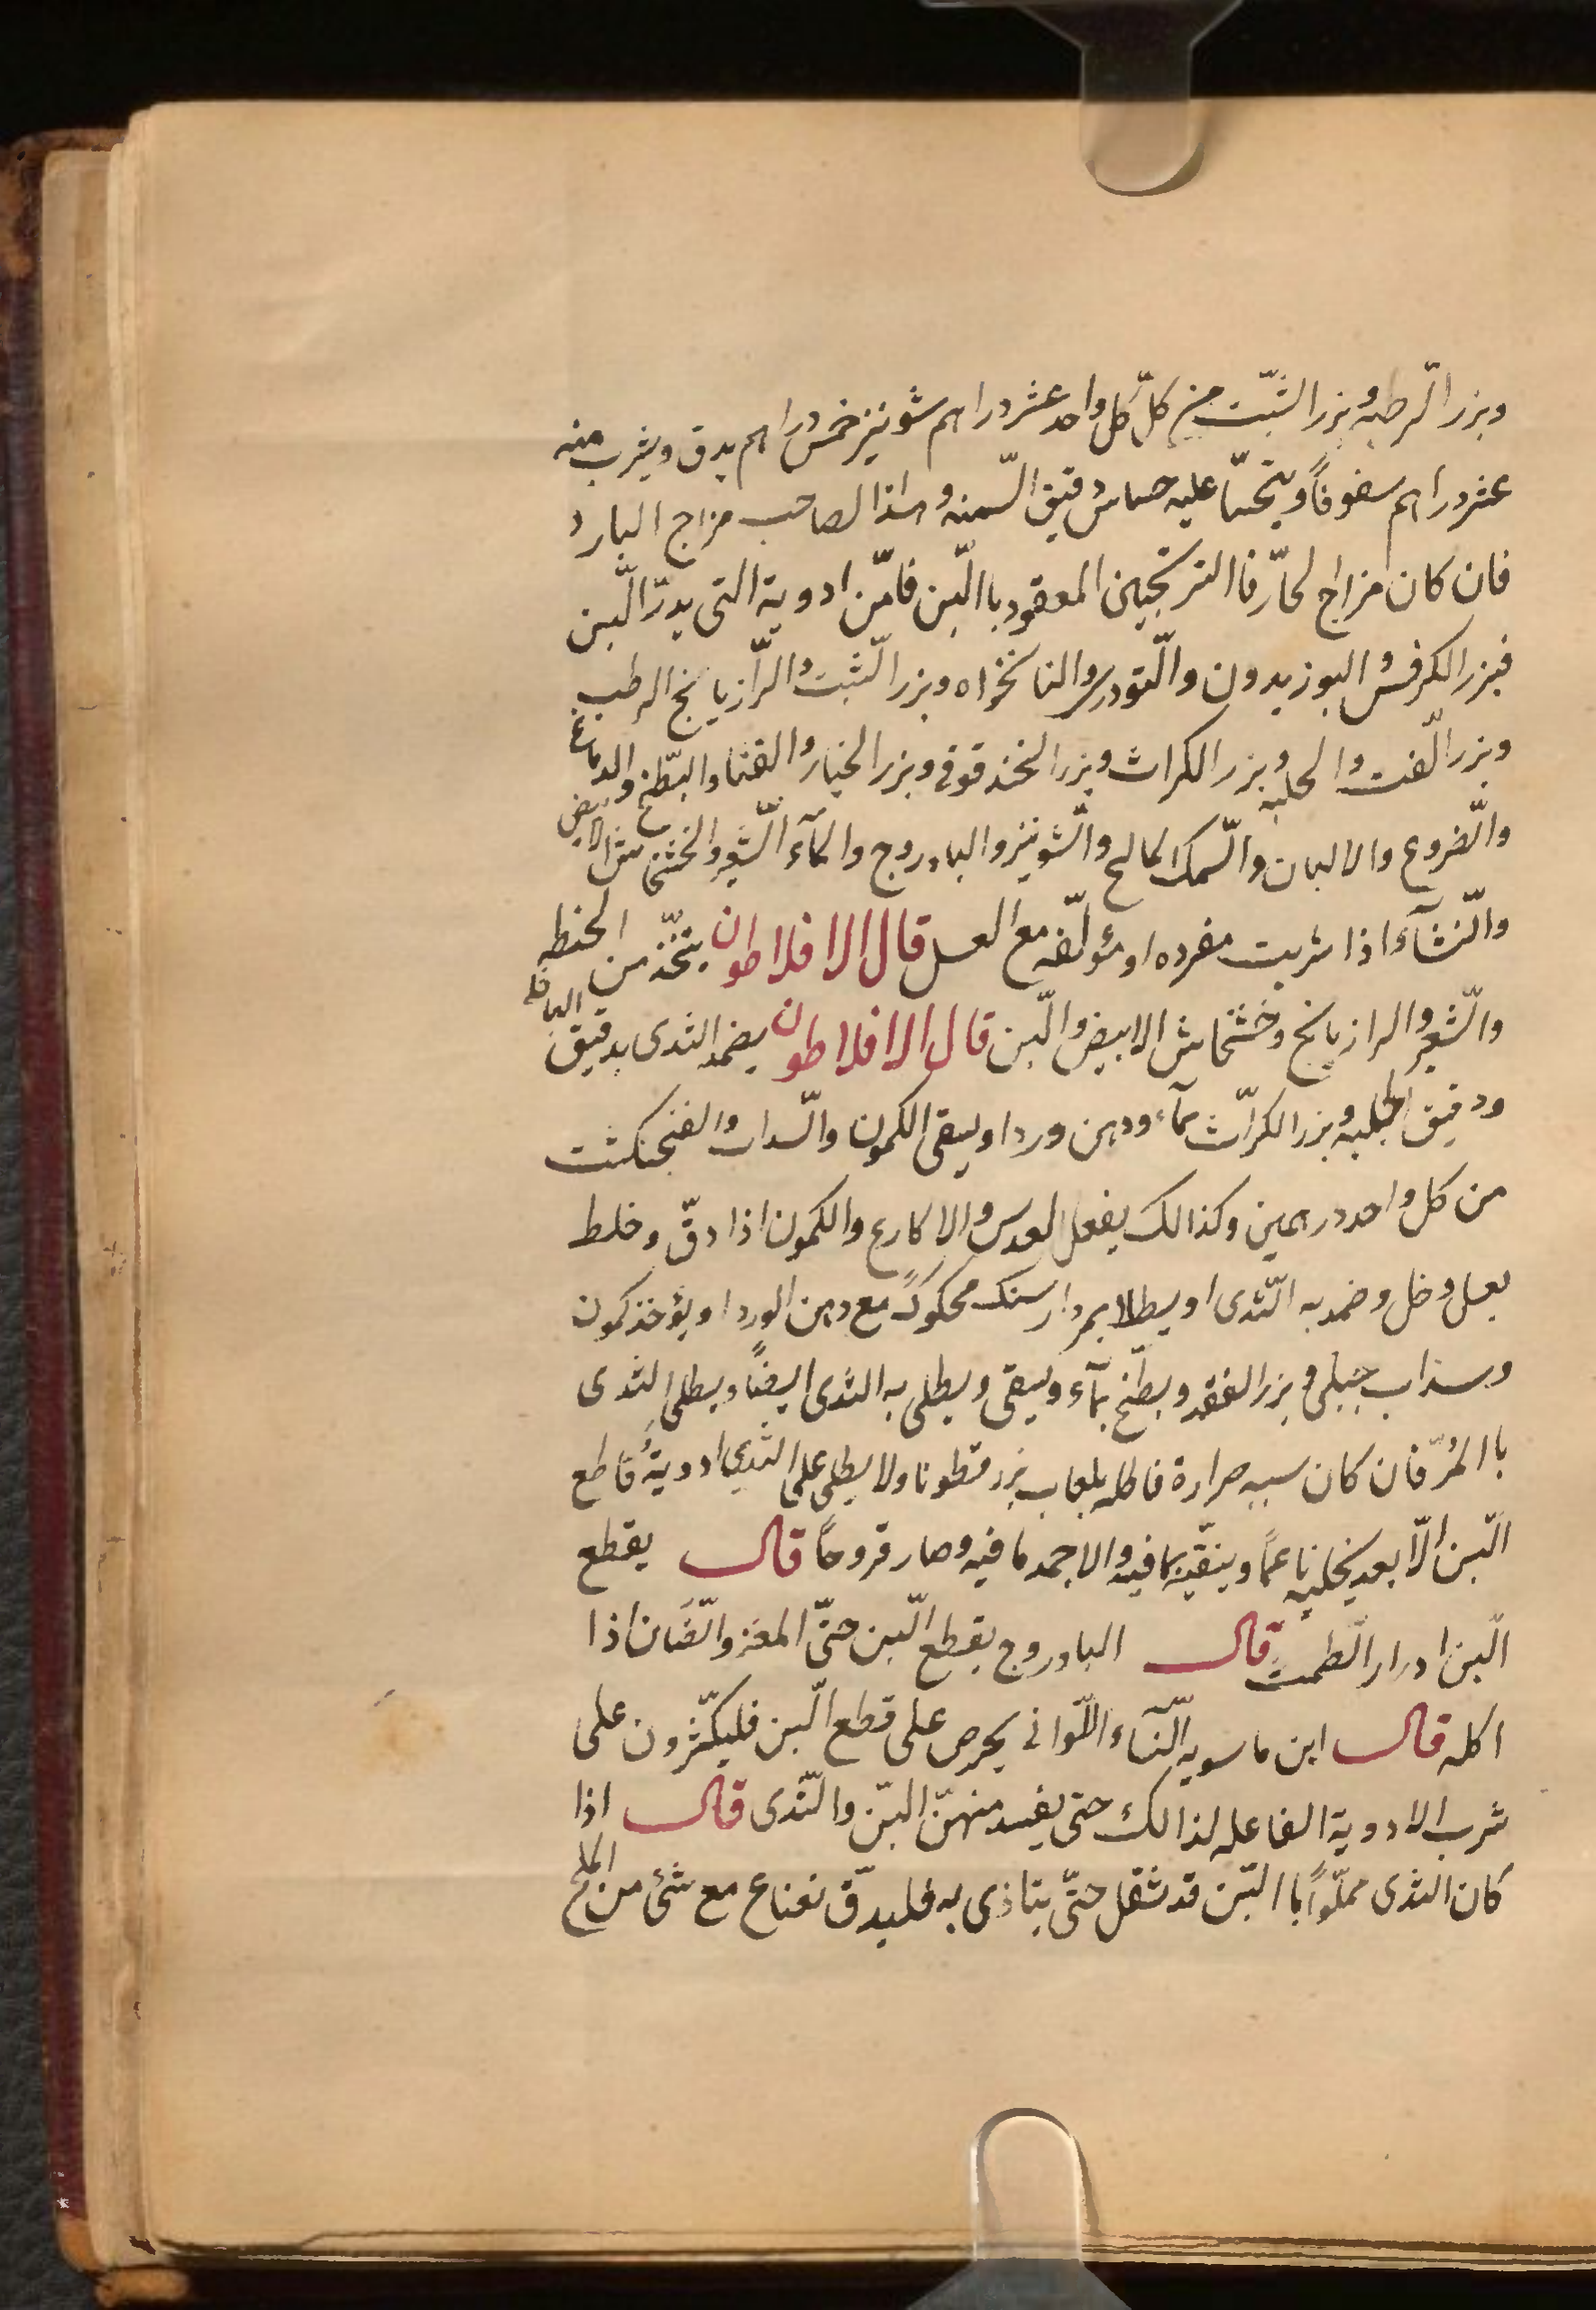 وبزر الرطبه وبزر الشبّت من كلّ كل واحد عشر دراهم شونيز خمس دراهم يدق ويشرب منه
عشر دراهم سفوفاً ويتحسّا عليه حساس دقيق السّمنه وهذا لصاحب مزاج البارد
فان كان مزاج لحارّ فا الترنجبين المعقود با الّبن فامّن ادوية التى يدرّ الّبن
فبزر الكرفس والبوزيدون والّتودرى والنانخواه وبزر الّشبت والرّازيانج الرطب
وبزر الّفت والحلبه وبزر الكراث وبزر الخندقوقى وبزر الخيار والقثاء والبطّيخ والدماغ
والّضروع والالبان والّسمك المالح والّشونيز والبادروج والمآء الّشعير والخشخاش الابيض
والّنشآء اذا شربت مفرده او مؤلّفه مع العسل قال الافلاطون يتّخذ من الحنطه
والّشعير والرازيانج وخشخاش الابيض والّبن قال الافلاطون يضمد الثدى بدقيق الباقله
ودقيق الحلبه وبزر الكرّاث بمآء ودهن ورد او يسقى الكمون والّسداب والفنجنكشت
من كل واحد درهمين وكذالك يفعل العدس والاكارع والكمون اذا دقّ وخلط
بعسل وخل وضمد به الّثدى او يطلا بمردارسنك محكوكً مع دهن الورد او يؤخذ كمون
وسذاب جبلى وبزر الفقد ويطبّخ بمآء ويسقى ويطلى به الثدى ايضًا ويطلى الثدى
با المُرّ فان كان سببه حرارة فاطله بلعاب بزر قطونا ولا يطلى على الثدي ادويةُ قاطع
الّبن الّا بعد تخليه ناعماً وينقّيه بما فيه والا جمد ما فيه وصار قروحاً قال يقطع
الّبن ادرار الّطمث قال البادروج يقطع الّبن حتّى المغز والّضَان اذا
اكله قال ابن ماسويه الّنسآء اللّوانى يحرص على قطع الّبن فليكثّرون على
شرب الادوية الفاعله لذالك حتى يفسد منهنّ البّن والّثدى قال اذا
كان الثدى مملوّاً با البّن قد ثقل حتّى يتاذى به فليدقّ نعناع مع شئ من الملح